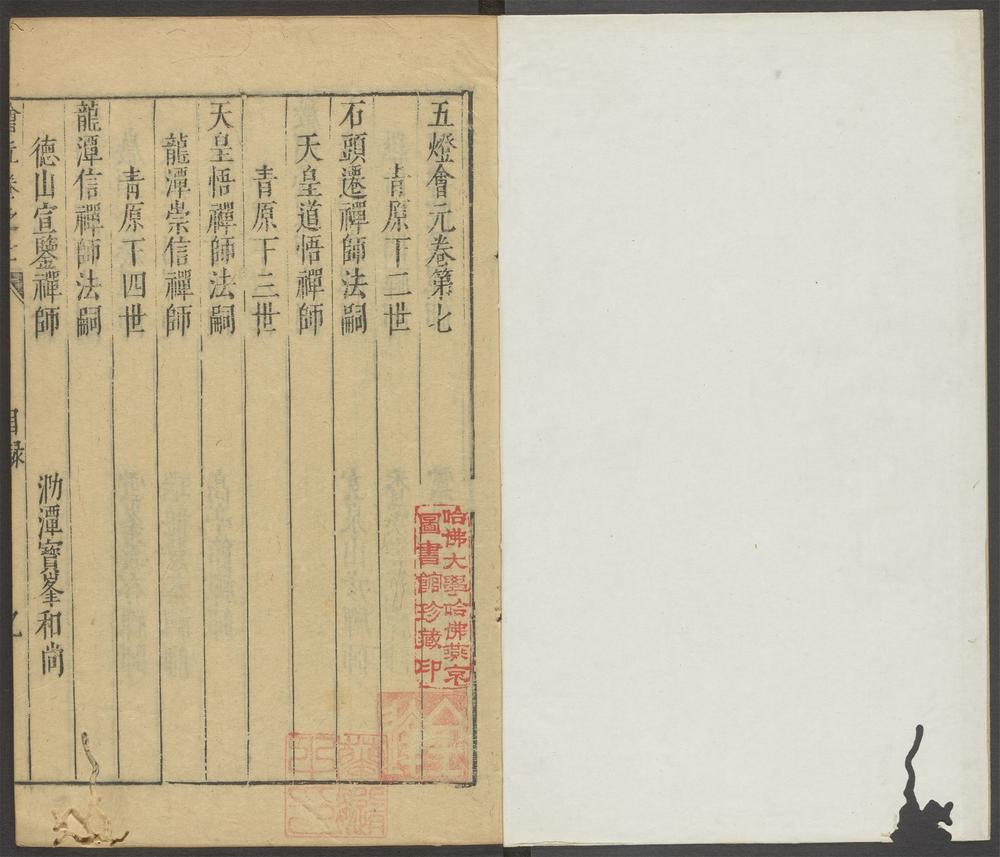 五燈會元卷第七
青原下二世
石頭遷禪師法嗣
天皇道悟禪師
青原下三世
天皇悟禪師法嗣
龍潭崇信禪師
青原下四世
龍潭信禪師法嗣
德山宣鑒禪師 泐潭寶峯和尚
目録
哈佛大學哈佛燕京
圖書館珍藏印